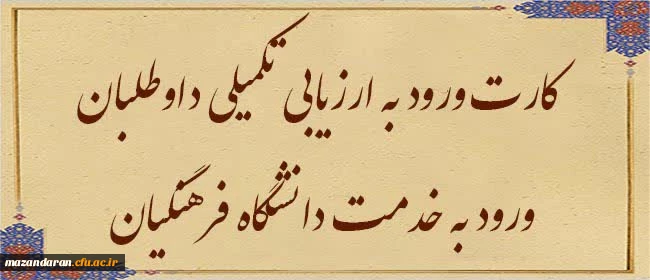 کارت ورود به ارزیابی تکمیلی داوطلبان
ورود به خدمت دانشگاه فرهنگیان
mazandaran.cfu.ac.ir